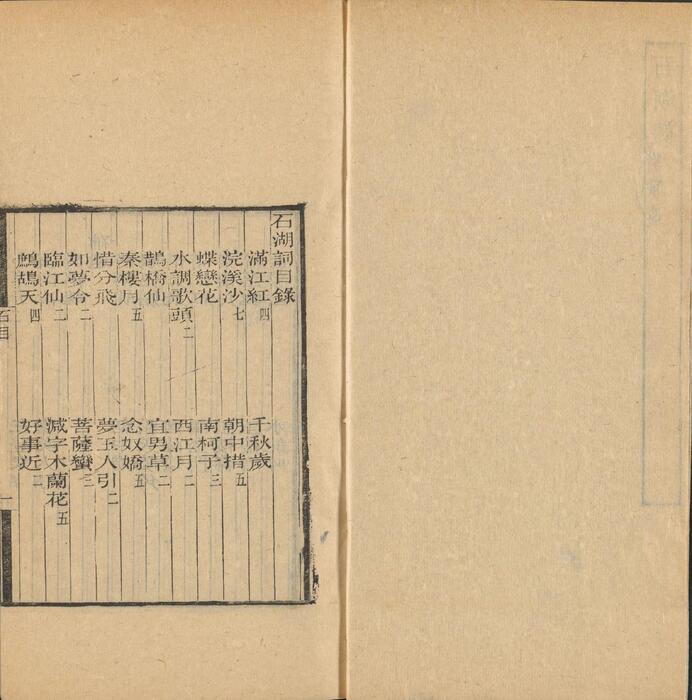 石湖詞目錄
滿江紅四　千秋歲
浣溪沙七　朝中措五
蝶戀花　南柯子三
水調歌頭二　西江月二
鵲橋仙　宜男草二
秦樓月五　念奴嬌五
惜分飛　夢玉人引二
如夢令二　菩薩蠻三
臨江仙二　減字木蘭花五
鷓鴣天四　好事近二
石目　一